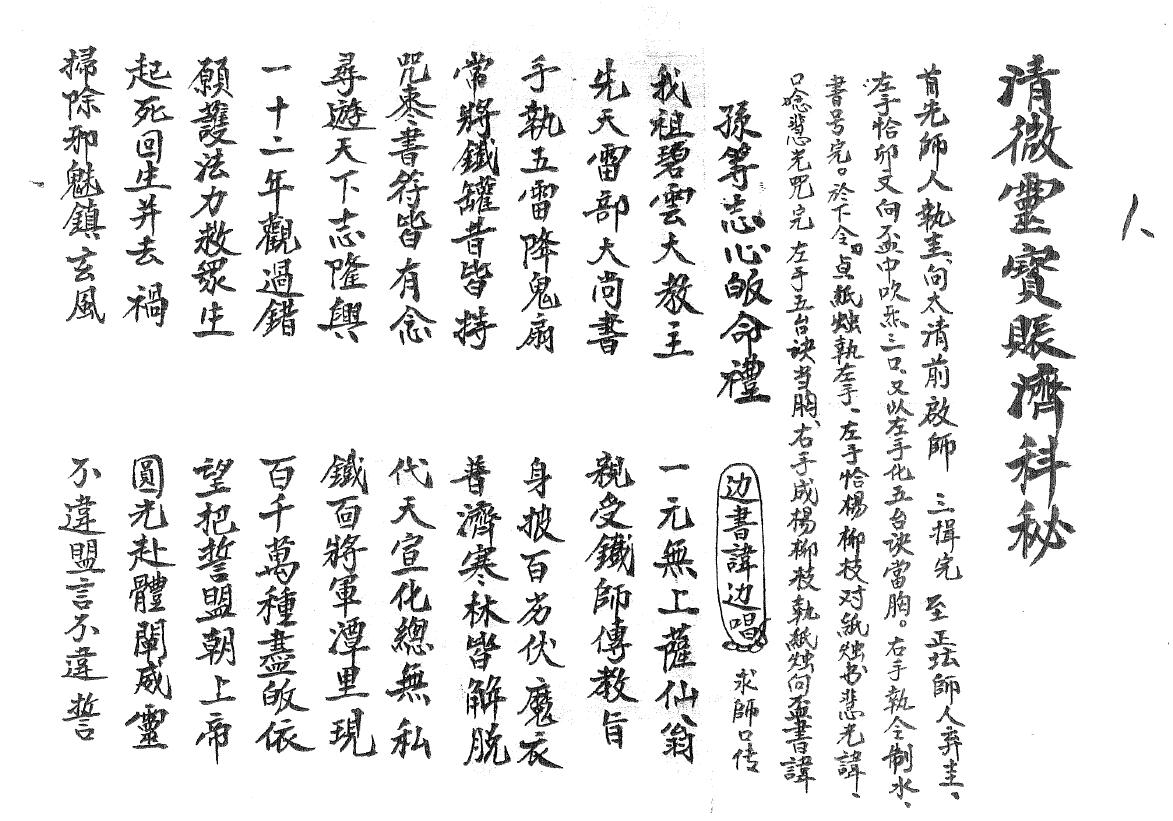 清微靈寶賬濟科秘
首先師人執圭、向太清前啟師 三揖完 至正坛師人弃圭、
左手恰卯文向盃中吹炁三口、又以左手化五台诀當胸。右手執令制水、
書号完。於下令。点紙烛執左手、左手恰楊柳枝对紙烛书悲光諱、
口唸悲光咒完 左手五台诀当胸、右手成楊柳枝執紙烛向盃書諱
孫等志心皈命禮 边書諱边唱 求師口传
我祖碧雲大教主 一元無上薩仙翁
先天雷部大尚書 親受鐵師傳教旨
手執五雷降鬼扇 身披百衲伏魔衣
常將鐵罐昔皆持 普濟寒林皆解脫
咒棗書符皆有念 代天宣化總無私
尋遊天下志隆興 鐵面將軍潭里現
一十二年觀過錯 百千萬種盡皈依
願護法力救眾生 望把誓盟朝上帝
起死回生并去禍 圓光赴體闡威靈
掃除邪魅鎮玄風 不違盟言不違誓